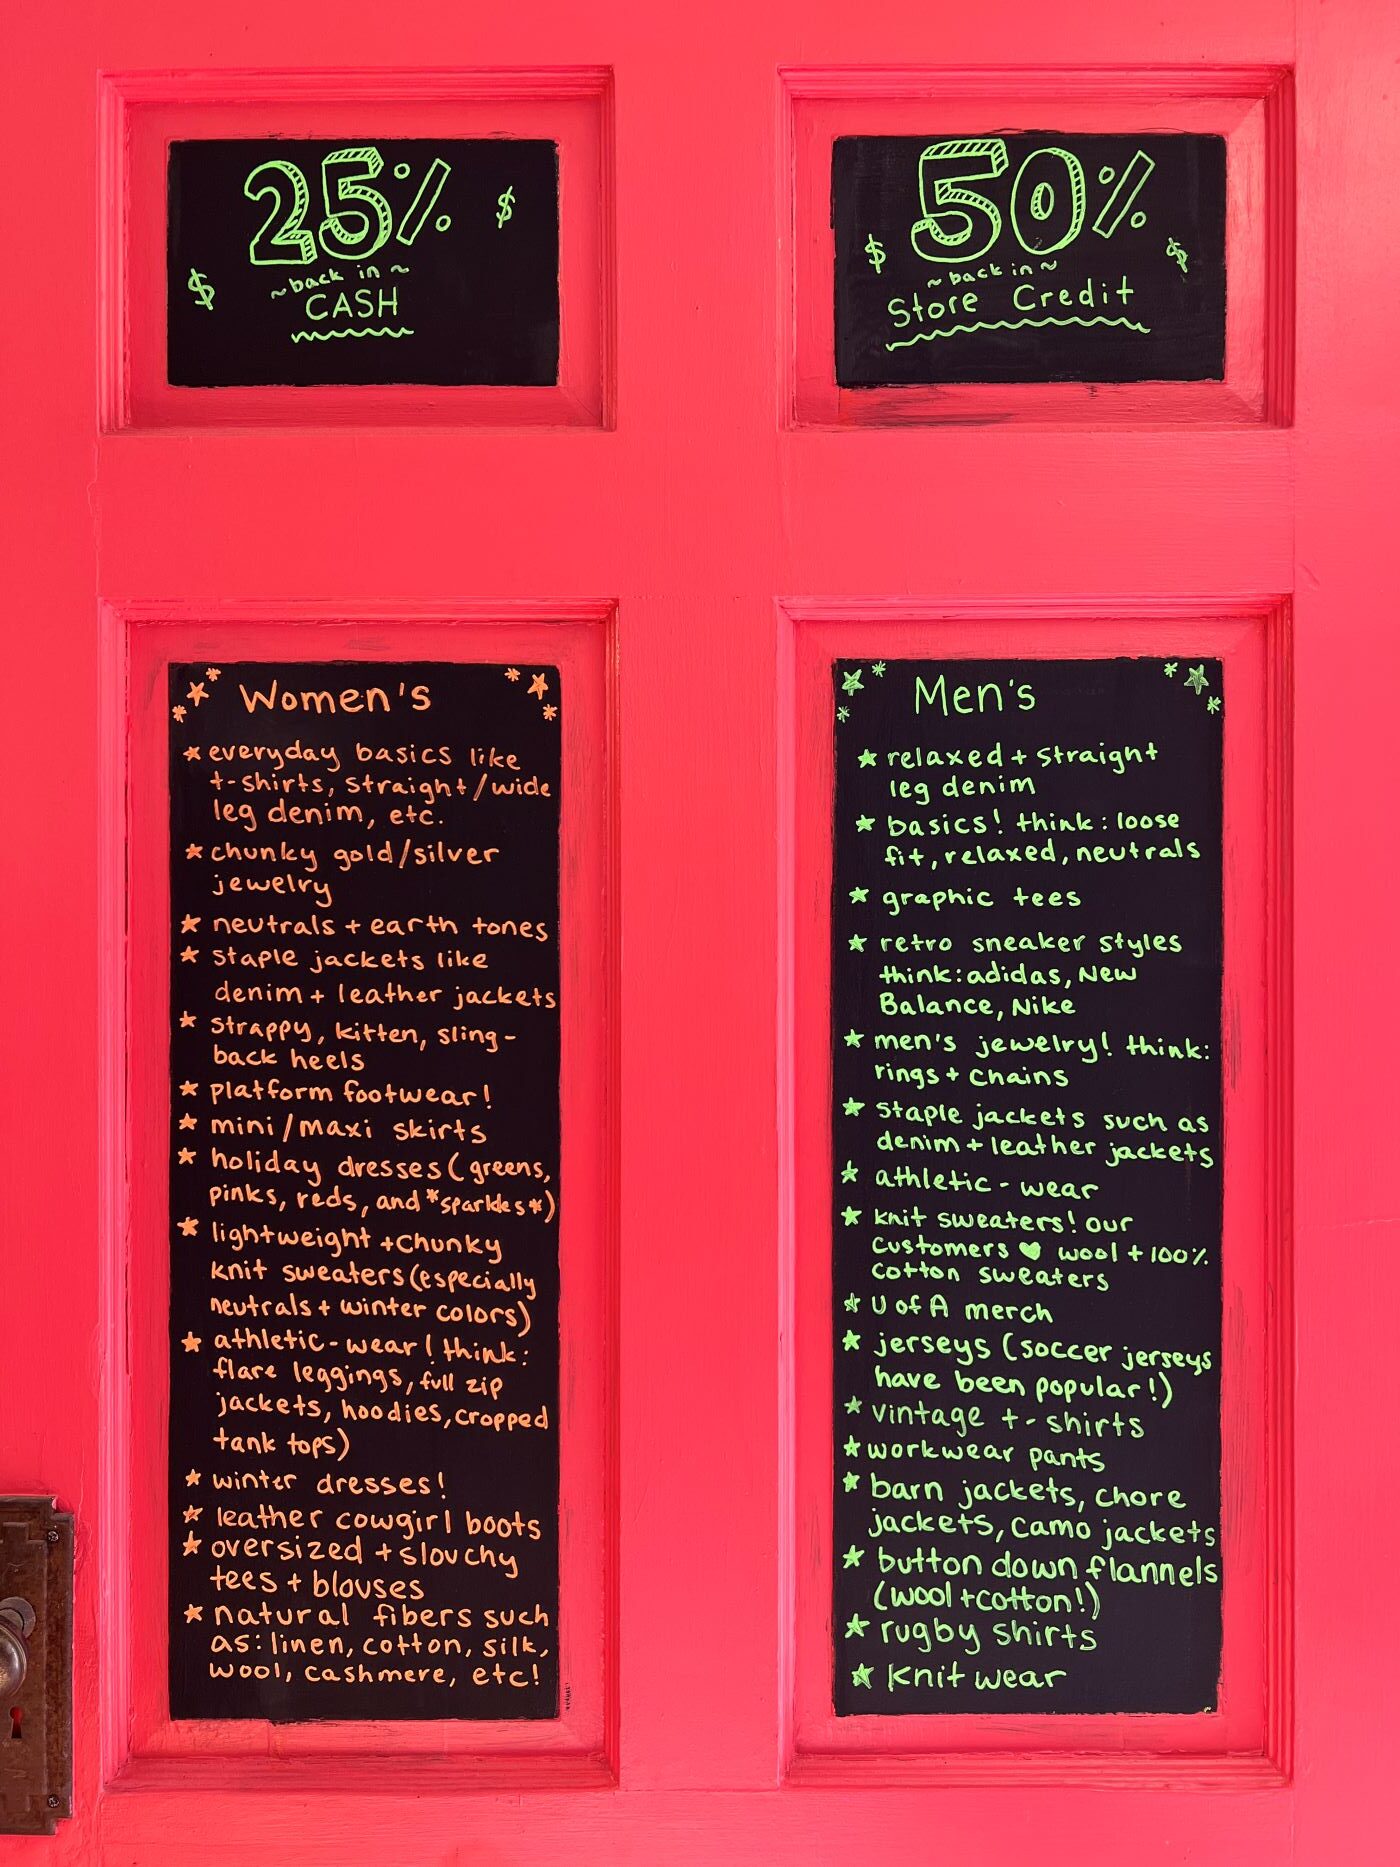 25%
$
$
~back in~
CASH
50%
$
$
~back in~
Store Credit
Women's
everyday basics like
t-shirts, straight/wide
leg denim, etc.
chunky gold/silver
jewelry
neutrals + earth tones
staple jackets like
denim + leather jackets
strappy, kitten, sling-
back heels
platform footwear!
mini/maxi skirts
holiday dresses (greens,
pinks, reds, and *sparkles*)
lightweight + chunky
knit sweaters (especially
neutrals + winter colors)
athletic-wear (think:
flare leggings, full zip
jackets, hoodies, cropped
tank tops)
winter dresses!
leather cowgirl boots
oversized + slouchy
tees + blouses
natural fibers such
as: linen, cotton, silk,
wool, cashmere, etc!
Men's
relaxed + straight
leg denim
basics! think: loose
fit, relaxed, neutrals
graphic tees
retro sneaker styles
think: adidas, New
Balance, Nike
men's jewelry! think:
rings + chains
staple jackets such as
denim + leather jackets
athletic-wear
knit sweaters! our
customers ♥ wool + 100%
cotton sweaters
U of A merch
jerseys (soccer jerseys
have been popular!)
vintage t-shirts
workwear pants
barn jackets, chore
jackets, camo jackets
button down flannels
(wool + cotton!)
rugby shirts
knit wear